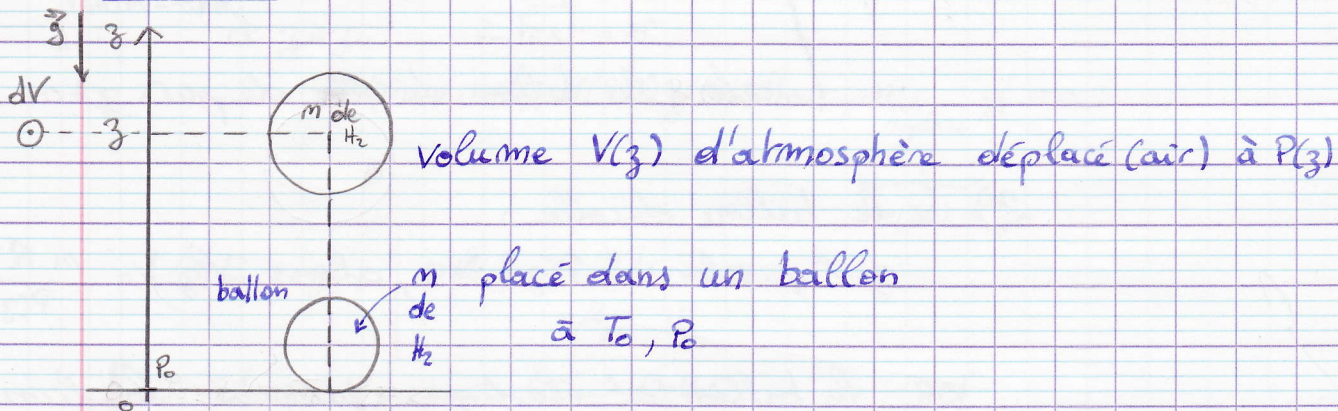 g z
dV
z
m de
H₂
volume V(z) d'atmosphère déplacé (air) à P(z)
ballon
m placé dans un ballon
de
H₂
à T₀, P₀
P₀
0